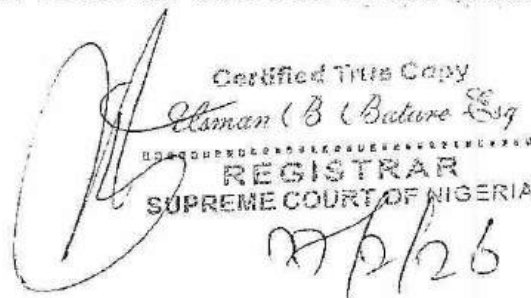 Certified True Copy
Usman B Bature Esq
REGISTRAR
SUPREME COURT OF NIGERIA
27/2/26